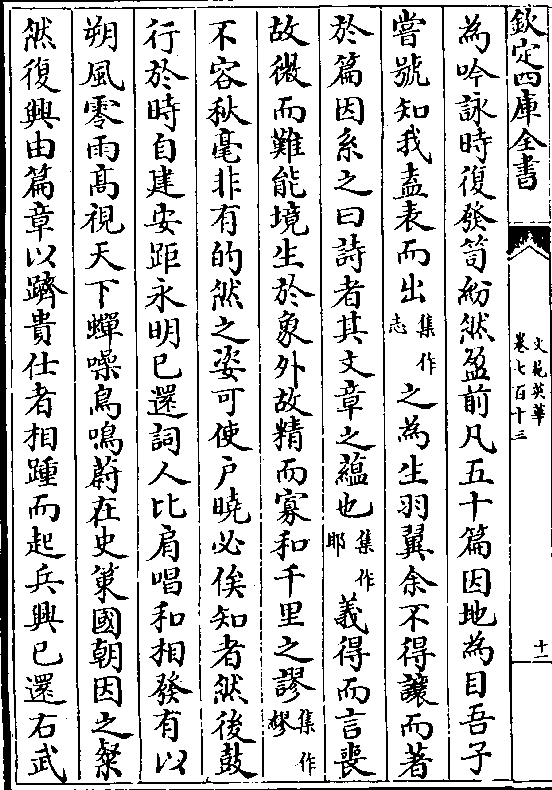 欽定四庫全書
文苑英華
卷七百十三
十一
為吟詠時復發笥紛然盈前凡五十篇因地為目吾子
嘗號知我盍表而出集作志之為生羽翼余不得讓而著
於篇因系之曰詩者其文章之藴也集作耶義得而言喪
故微而難能境生於象外故精而寡和千里之謬集作繆
不容秋毫非有的然之姿可使户曉必俟知者然後鼓
行於時自建安距永明已還詞人比肩唱和相發有以
朔風零雨高視天下蟬噪鳥鳴蔚在史䇿國朝因之粲
然復興由篇章以躋貴仕者相踵而起兵興已還右武